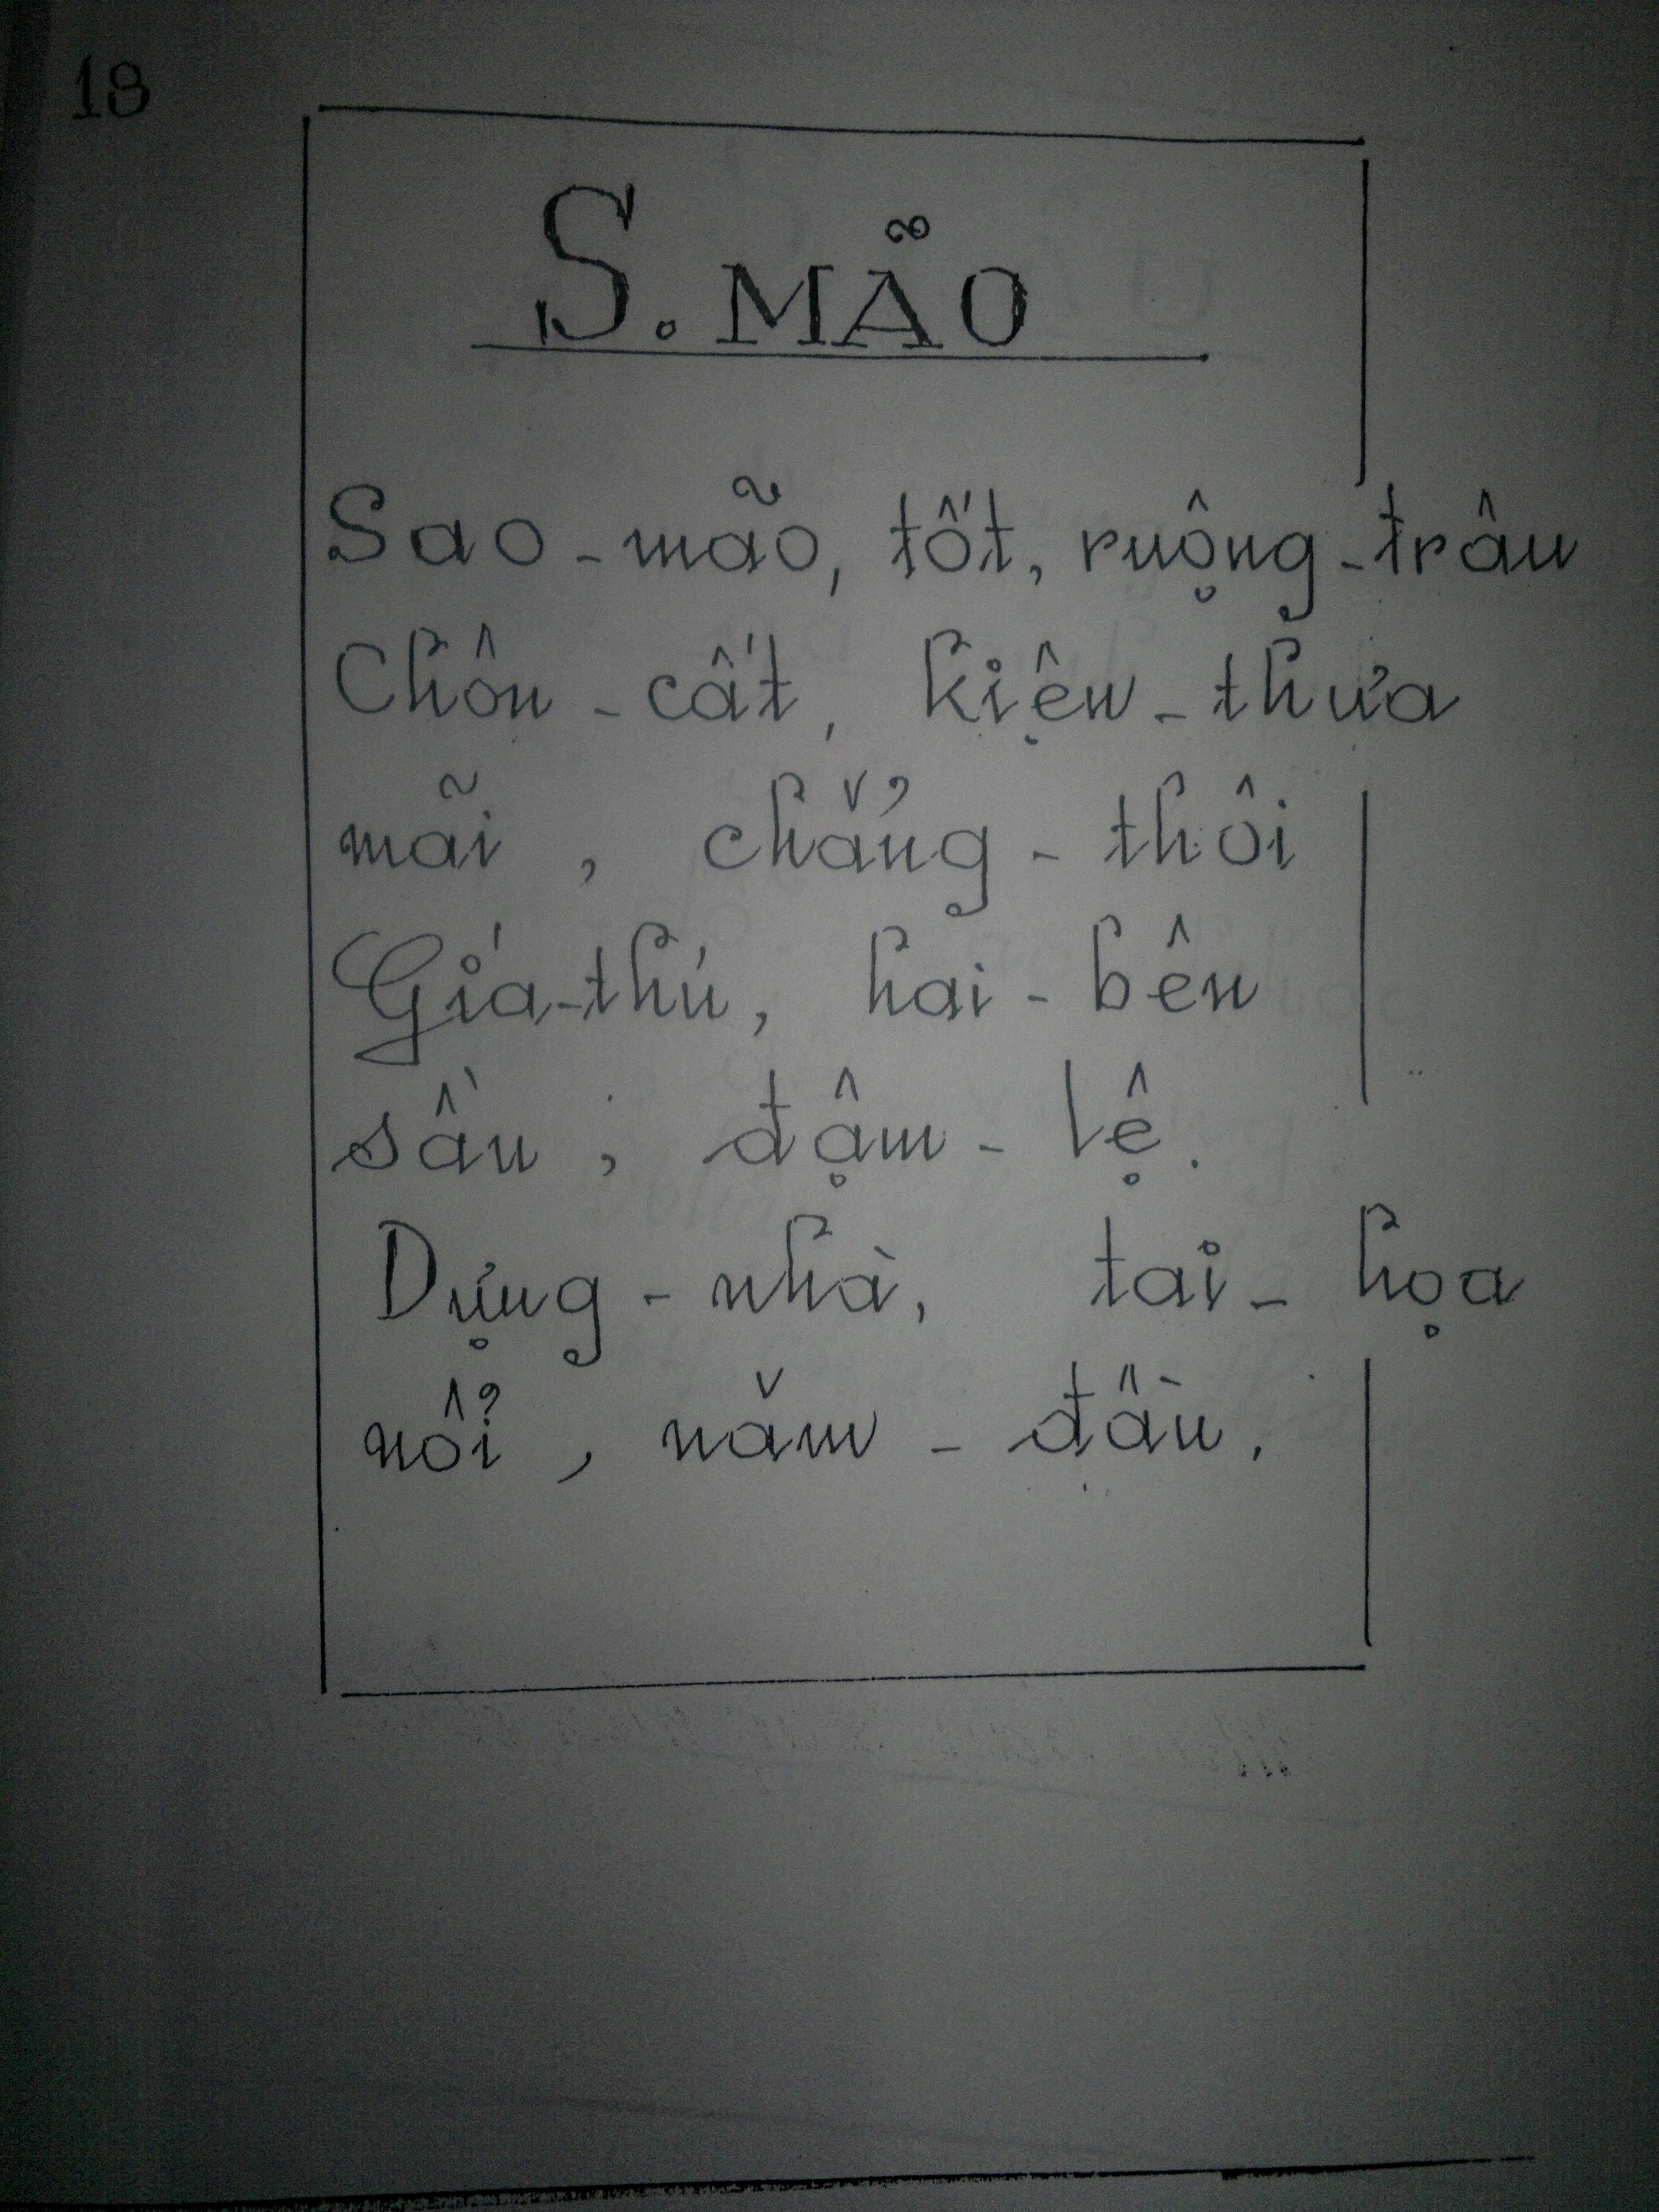 18
S. MÃO
Sao-mão, tốt, ruộng-trâu
Chôn-cất, kiện-thưa
mãi, chẳng-thôi
Giá-thú, hai-bên
sầu, đậm-lệ.
Dựng-nhà, tai-họa
nổi, năm-đầu.